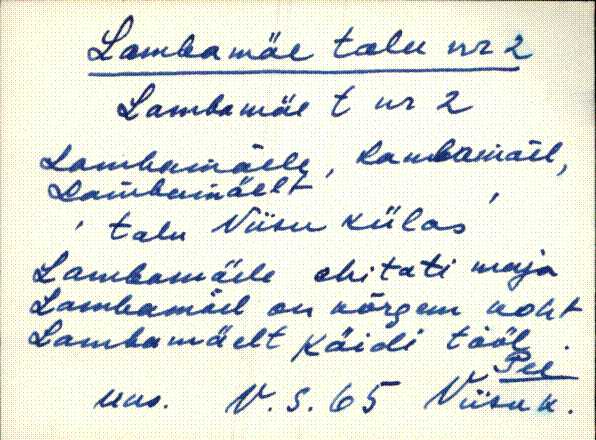 Lambamäe talu nr 2
Lambamäe t nr 2
Lambamäele, Lambamäel,
Lambamäelt
' talu Viisu külas '
Lambamäele ehitati maja
Lambamäel on kõrgem koht
Lambamäelt käidi tööl.
Pee
V. S. 65 Viisu k.